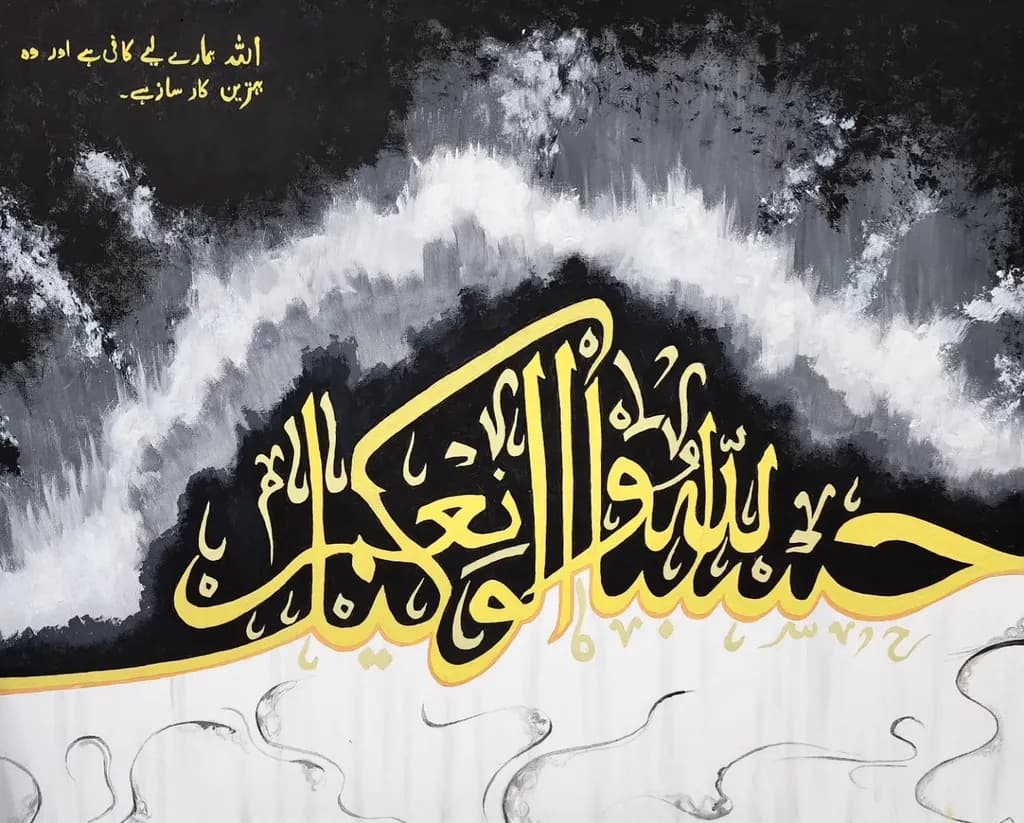 اللہ ہمارے لیے کافی ہے اور وہ
بہترین کار ساز ہے۔
حسبنا الله ونعم الوكيل